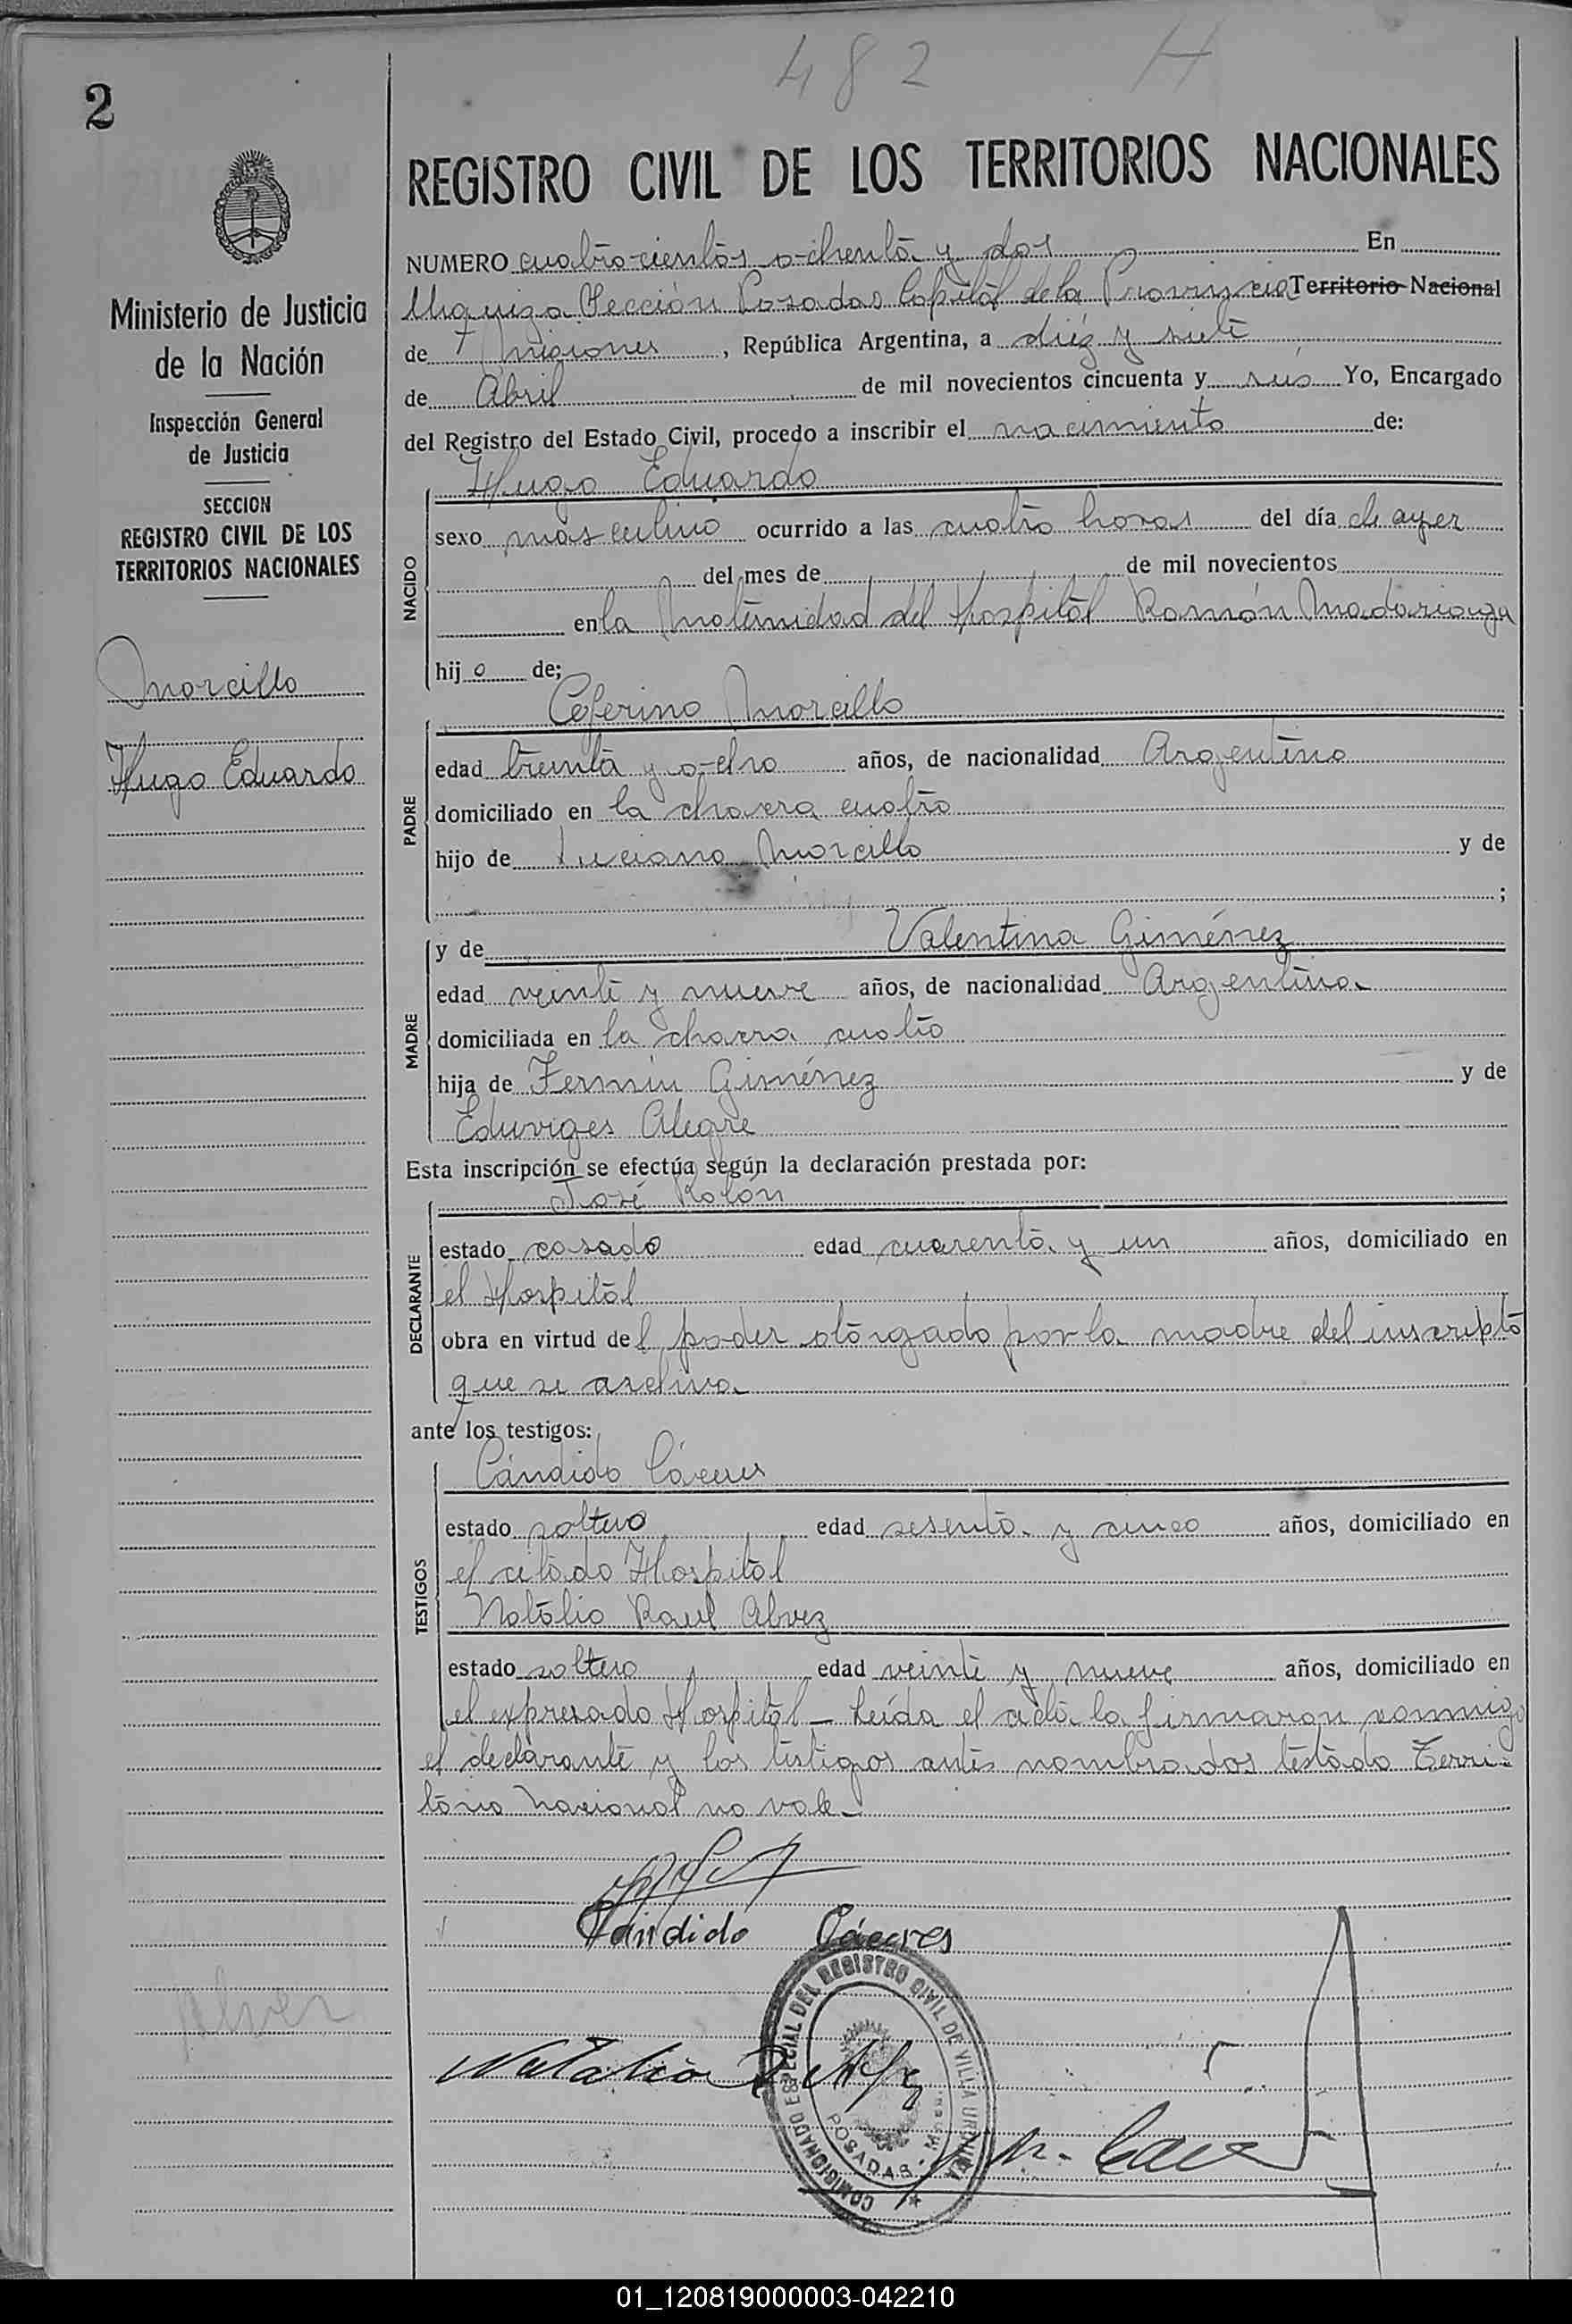 482 H
2
REGISTRO CIVIL DE LOS TERRITORIOS NACIONALES
NUMERO cuatrocientos ochenta y dos En
Urquiza Sección Posadas Capital de la Provincia Territorio Nacional
de Misiones, República Argentina, a diéz y siete
de Abril de mil novecientos cincuenta y seis Yo, Encargado
del Registro del Estado Civil, procedo a inscribir el nacimiento de:
Hugo Eduardo
NACIDO
sexo masculino ocurrido a las cuatro horas del día de ayer
del mes de de mil novecientos
en la Maternidad del Hospital Ramón Madariaga
hijo de;
Ceferino Morcillo
PADRE
edad treinta y ocho años, de nacionalidad Argentino
domiciliado en la chacra cuatro
hijo de Luciano Morcillo y de
;
y de Valentina Giménez
MADRE
edad veinte y nueve años, de nacionalidad Argentina
domiciliada en la chacra cuatro
hija de Fermín Giménez y de
Eduviges Alegre
Esta inscripción se efectúa según la declaración prestada por:
José Rolón
DECLARANTE
estado casado edad cuarenta y un años, domiciliado en
el Hospital
obra en virtud del poder otorgado por la madre del inscripto
que se archiva
ante los testigos:
Cándido Cáceres
TESTIGOS
estado soltero edad sesenta y cinco años, domiciliado en
el citado Hospital
Natalio Raul Alvez
estado soltero edad veinte y nueve años, domiciliado en
el expresado Hospital - Leída el acta la firmaron conmigo
el declarante y los testigos antes nombrados testado Terri-
torio Nacional no vale-
Cándido Cáceres
Natalio R Alvez
COMISIONADO ESPECIAL DEL REGISTRO CIVIL DE VILLA URQUIZA
POSADAS
Ministerio de Justicia
de la Nación
Inspección General
de Justicia
SECCION
REGISTRO CIVIL DE LOS
TERRITORIOS NACIONALES
Morcillo
Hugo Eduardo
01_120819000003-042210